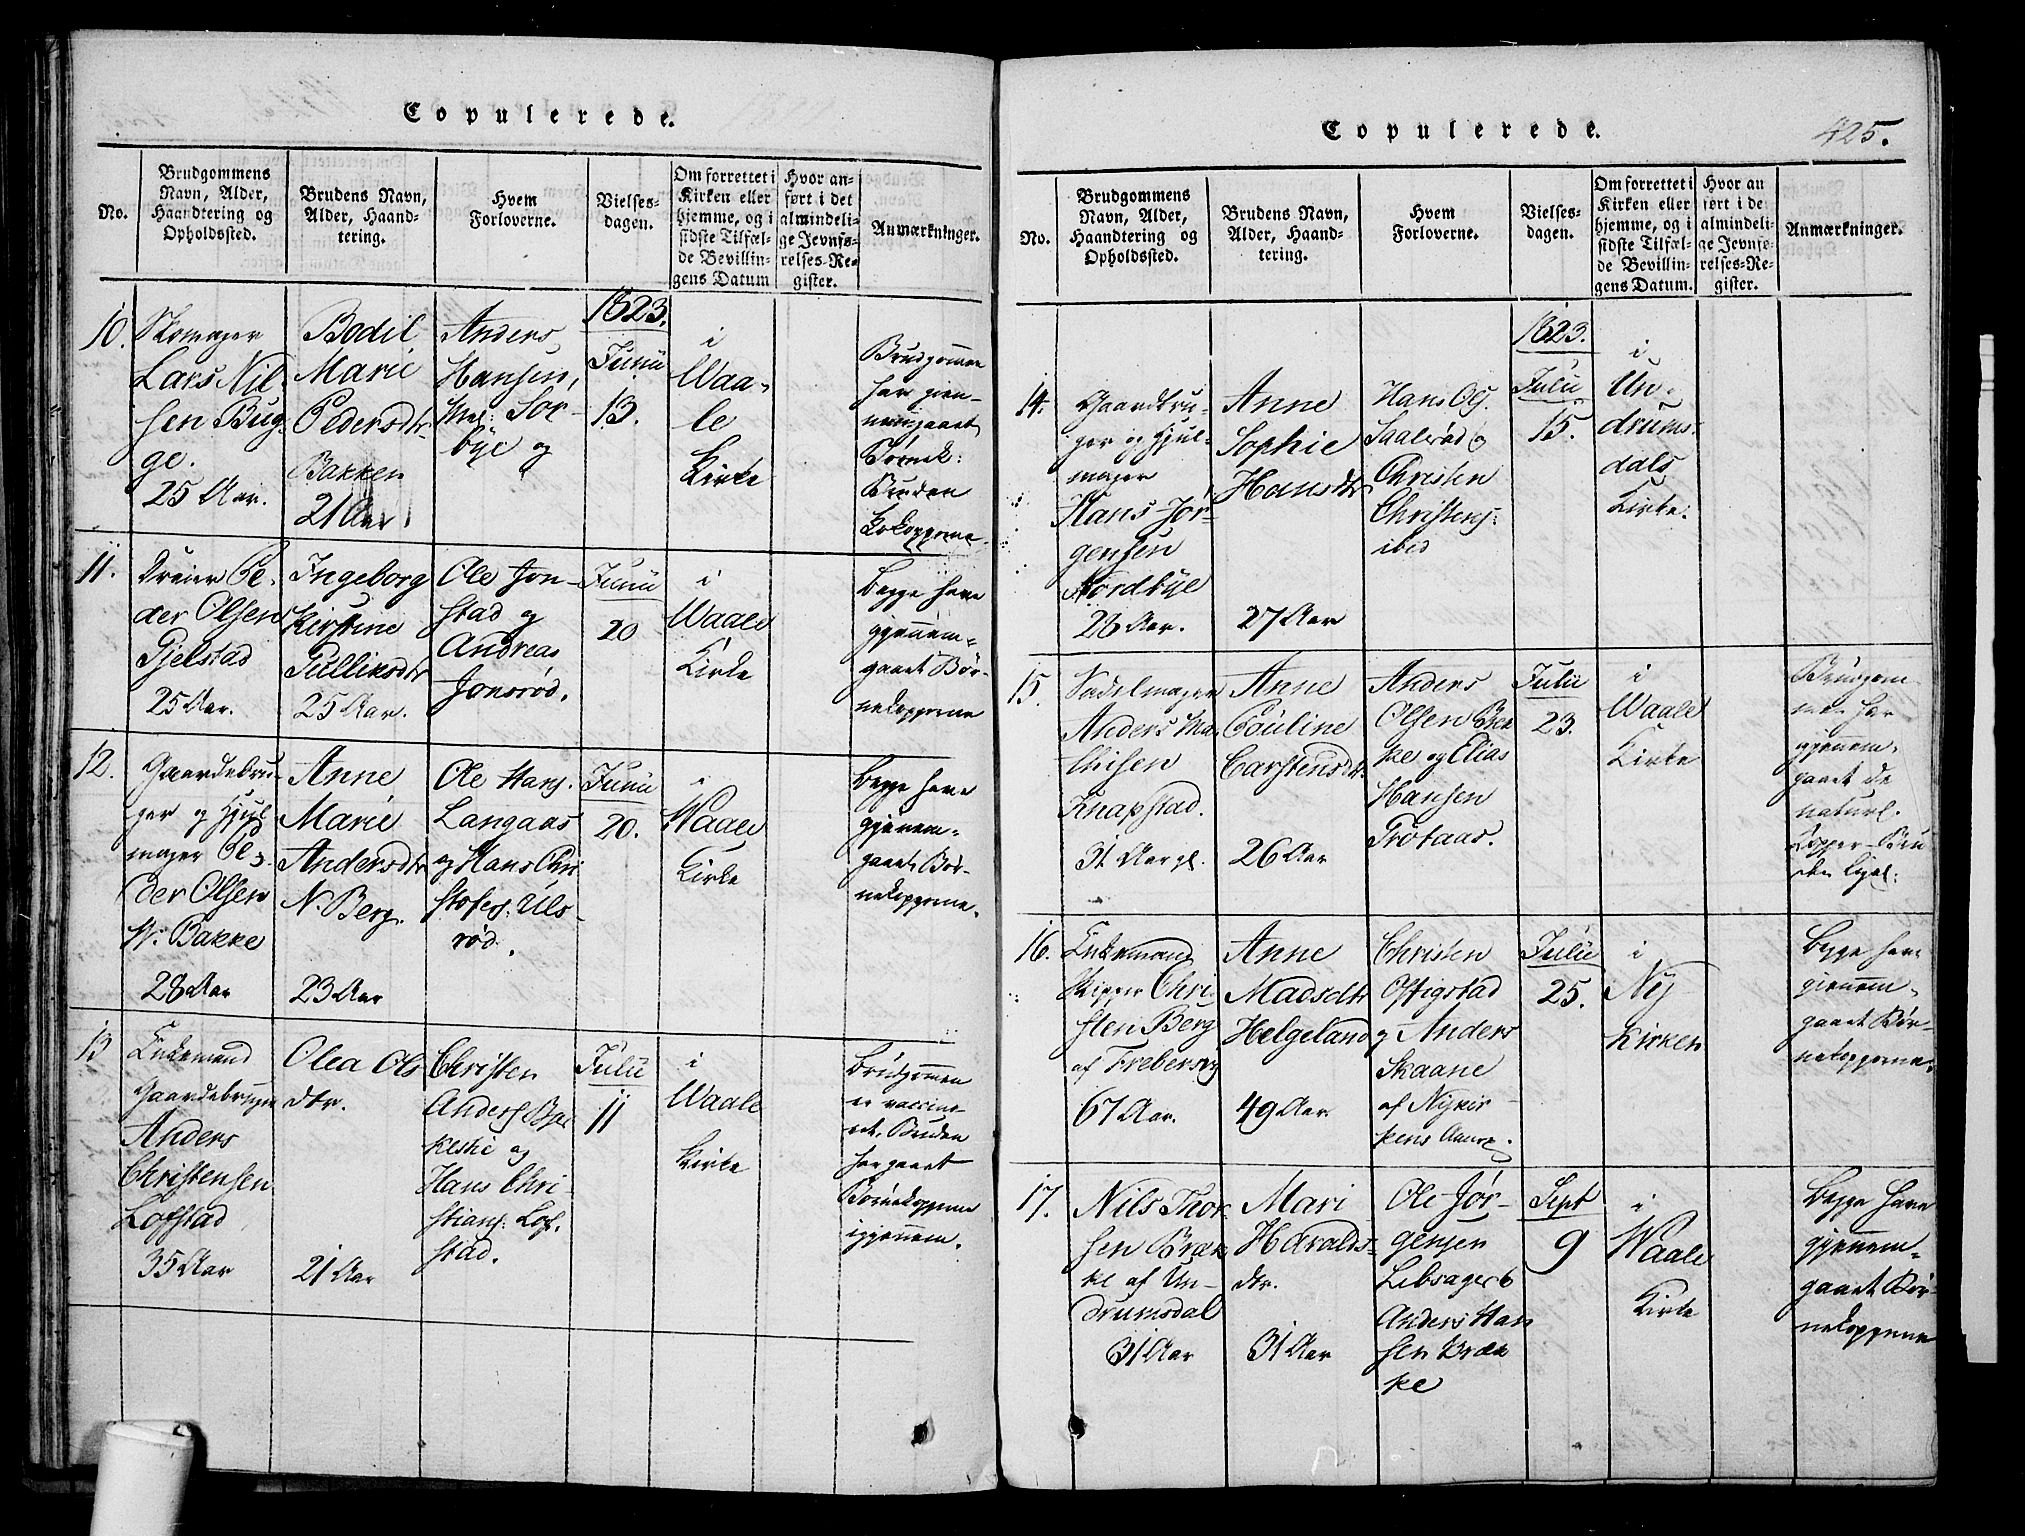 Copulerede.
No.
Brudgommens
Navn, Alder,
Haandtering og
Opholdssted.
Brudens Navn,
Alder, Haand-
tering.
Hvem
Forloverne.
Vielses-
dagen.
Om forrettet i
Kirken eller
hjemme, og i
sidste Tilfæl-
de Bevillin-
gens Datum
Hvor an-
ført i det
almindeli-
ge Jevnfø-
relses-Re-
gister.
Anmærkninger.
10.
Skomager
Lars Nil-
sen Bug-
ge.
25 Aar.
Bodil
Marie
Pedersdtr
Bakken
21 Aar
Anders
Hansen,
Sør-
bye og
1823.
Junii
13.
i
Waa-
le
Kirke
Brudgommen
har gien-
nemgaaet
Børnek:
Bruden
Kokopperne.
11.
Dreier Pe-
der Olsen
Gjelstad
25 Aar.
Ingeborg
Kirstine
Tulliksdtr
25 Aar.
Ole Jon-
stad og
Andreas
Jonsrød.
Junii
20
i
Waale
Kirke
begge have
gjennem-
gaaet Bør-
nekopperne
12.
Gaardebru-
ger og Hjul
mager Pe-
der Olsen
N. Bakke
28 Aar
Anne
Marie
Andersdtr
N. Berg.
23 Aar
Ole Hans.
Langaas
og Hans Chri
stofers. Uls-
rød.
Junii
20.
i
Waale
Kirke
begge have
gjenem-
gaaet Bør-
nekopperne.
13
Enkemand
Gaardebruger
Anders
Christensen
Lofstad
35 Aar
Olea Ols
dtr.
21 Aar
Christen
Anders. Bjer
keskie og
Hans Chri-
stians. Lof-
stad.
Julii
11
i
Waale
Kirke
Brudgommen
er vaccine-
ret. Bruden
har gaaet
Børnekopperne
igjennem.
Copulerede.
425.
No.
Brudgommens
Navn, Alder,
Haandtering og
Opholdssted.
Brudens Navn,
Alder, Haand-
tering.
Hvem
Forloverne.
Vielses-
dagen.
Om forrettet i
Kirken eller
hjemme, og i
sidste Tilfæl-
de Bevillin-
gens Datum.
Hvor an
ført i de
almindeli-
ge Jevnfø-
relses-Re-
gister.
Anmærkninger.
14.
Gaardbru-
ger og Hjul-
mager
Hans Jør-
gensen
Nordbye
28 Aar.
Anne
Sophie
Hansdtr
27 Aar
Hans Ols.
Saalerød og
Christen
Christens:
ibid
1823.
Julii
15.
i
Un-
drums-
dals
Kirke.
15.
Sadelmager
Anders Ma-
thisen
Knapstad.
31 Aar gl.
Anne
Pouline
Carstensdtr.
26 Aar
Anders
Olsen Bek
ke og Elias
Hansen
Trøtaas.
Julii
23.
i
Waale
Kirke
Brudgom-
men har
gjennem-
gaaet de
naturl.
Kopper. Bru
den
16.
Enkemand
Skipper Chri
sten Berg
af Frebersvig
67 Aar.
Anne
Madsdtr
Helgeland
49 Aar.
Christen
Oftigstad
og Anders
Skaane
af Nykir-
kens Annex.
Julii
25.
i
Ny
Kirken
begge have
gienem-
gaaet Bør-
nekopperne.
17.
Nils Thor
sen Bræk
ke af Un-
drumsdal
31 Aar
Mari
Haralds-
dtr.
31 Aar
Ole Jør-
gensen
Libsager &
Anders Han
sen Bræk
ke
Sept
9
i
Waale
Kirke
begge have
gjenem-
gaaet Bør-
nekopperne